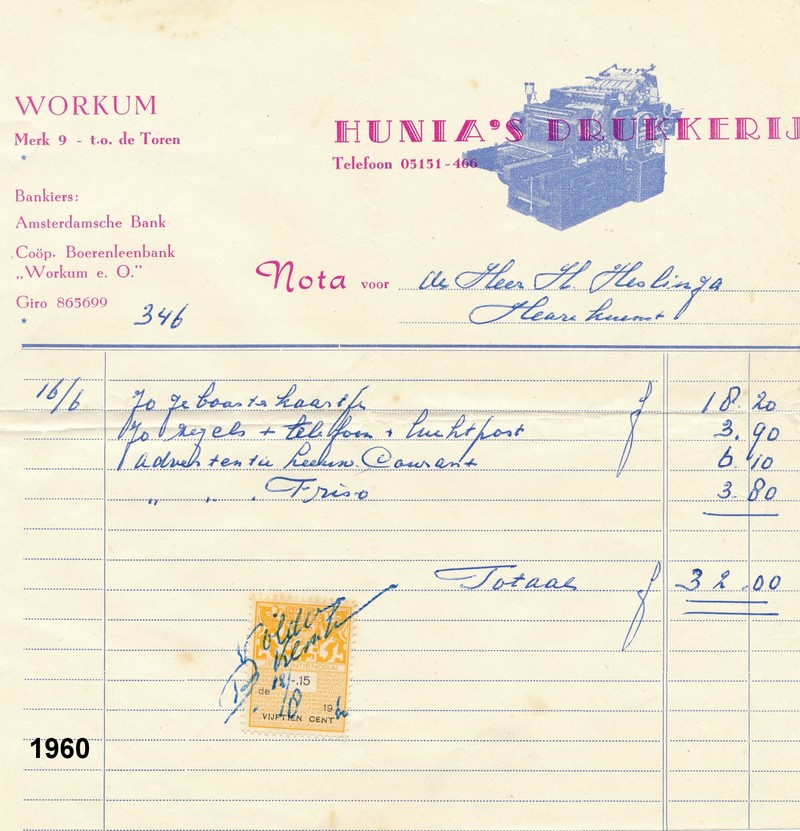 WORKUM
Merk 9 - t.o. de Toren
*
Bankiers:
Amsterdamsche Bank
Coöp. Boerenleenbank
„Workum e. O.”
Giro 865699
*
346
HUNIA'S DRUKKERIJ
Telefoon 05151-466
Nota voor de Heer H. Heslinga
16/6 70 geboortekaartjes f 18.20
70 zegels + telefoon + luchtpost 3.90
1 advertentie Leeuw. Courant 6.10
„ „ . Friso 3.80
Totaal f 32.00
Voldaan
-.15
de 19
VIJFTIEN CENT
1960